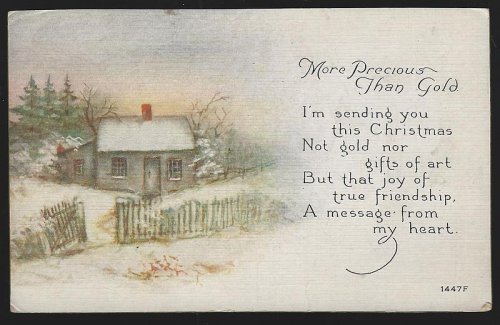 More Precious
Than Gold
I'm sending you
this Christmas
Not gold nor
gifts of art
But that joy of
true friendship,
A message from
my heart.
1447F